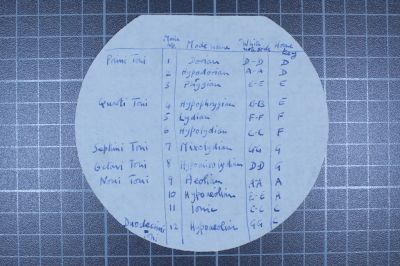 Mode No. Mode name "White" note scale Home Key
Primi Toni 1 Dorian D-D D
2 Hypodorian A-A D
3 Phrygian E-E E
Quarti Toni 4 Hypophrygian B-B E
5 Lydian F-F F
6 Hypolydian C-C F
Septimi Toni 7 Mixolydian GG G
Octavi Toni 8 Hypomixolydian D-D G
Noni Toni 9 Aeolian AA A
10 Hypoaeolian E-E A
11 Ionic C-C C
Duodecimi Toni 12 GG C